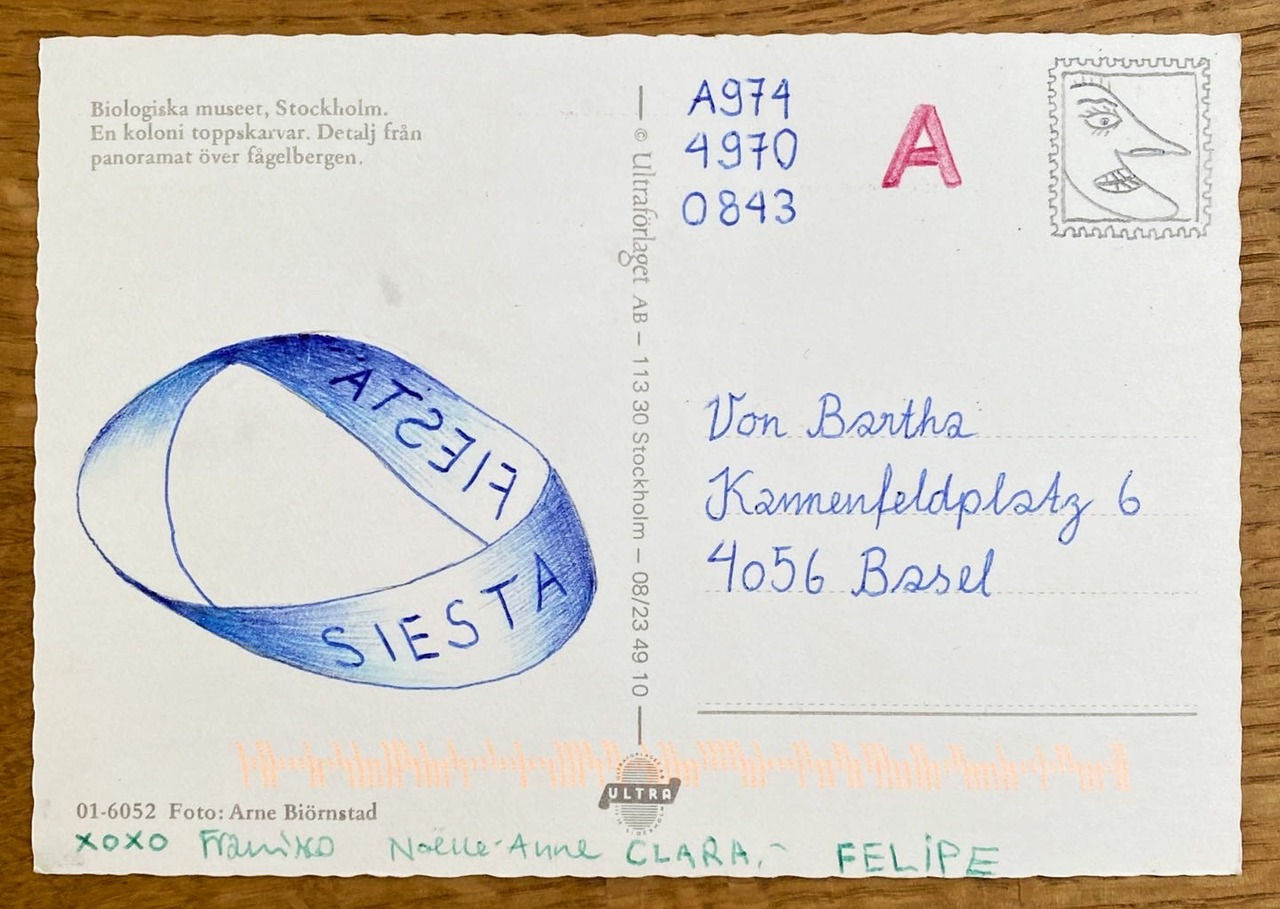 Biologiska museet, Stockholm.
En koloni toppskarvar. Detalj från
panoramat över fågelbergen.
FIESTA
SIESTA
01-6052 Foto: Arne Biörnstad
© Ultraförlaget AB – 113 30 Stockholm – 08/23 49 10
ULTRA
A974
4970
0843
A
Von Bartha
Kannenfeldplatz 6
4056 Basel
xoxo Noëlle-Anne CLARA.- FELIPE